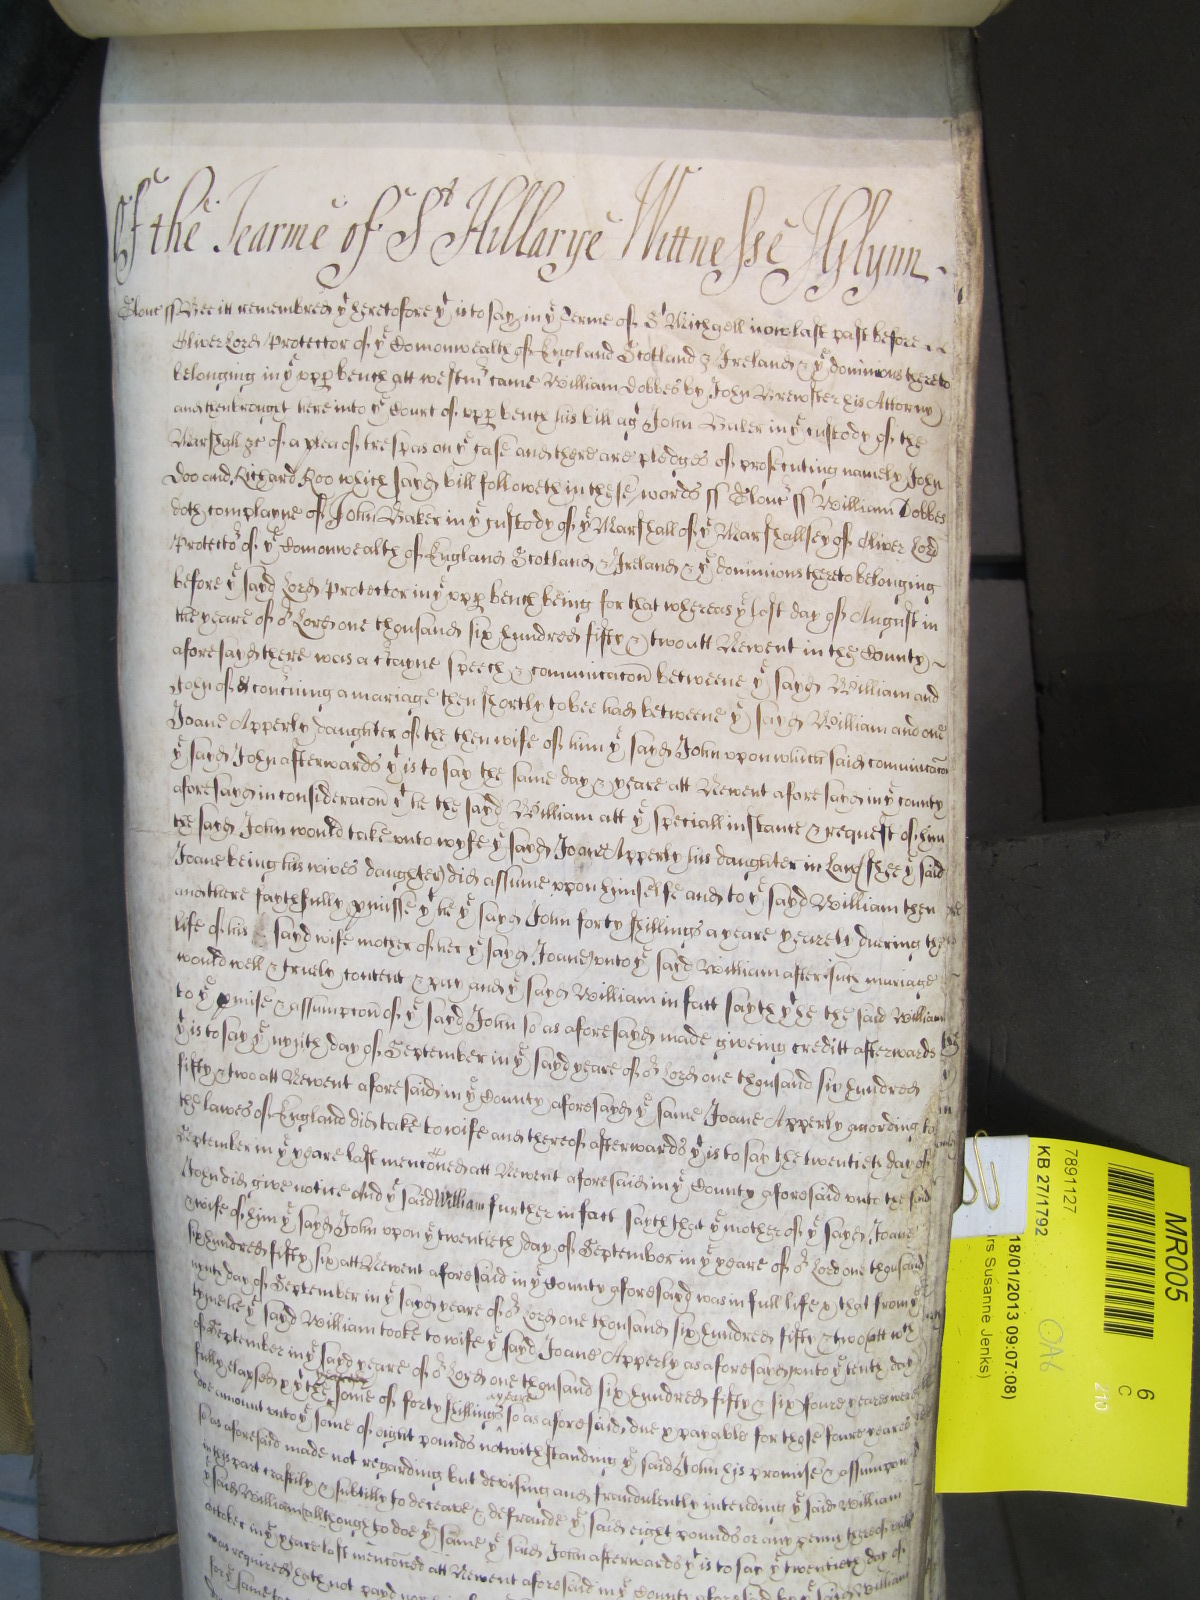 Of the Tearme of St Hillarye Wittnesse Jo Glynn.
Glouc ss Bee itt remembred yt heretofore yt is to say in ye Terme of St Michaell now last past before
Oliver Lord Protector of ye Comonwealth of England Scotland & Ireland & ye dominions thereto
belonging in ye upp bench att westmr came William Dobbes by John Brewster his Attorny
and then brought here into ye Court of upp bench his bill agt John Baker in ye custody of the
Marshall &c of a plea of trespas on ye case and there are pledges of prosecuting namely John
Doo and Richard Roo which sayd bill followeth in these words ss Glouc ss William Dobbes
doth complayne of John Baker in ye custody of ye Marshall of ye Marshallsey of Oliver Lord
Protector of ye Comonwealth of England Scotland & Ireland & ye dominions thereto belonging
before ye sayd Lord Protector in ye upp bench being for that whereas ye last day of August in
the yeare of or Lord one thousand six hundred fifty & two att Newent in the County
aforesayd there was a ctayne speech & communicacon betweene ye sayd William and
John of & concning a mariage then shortly to bee had betweene ye sayd William and one
Joane Apperly daughter of the then wife of him ye sayd John upon which said communicacon
ye sayd John afterwards yt is to say the same day & yeare att Newent aforesayd in ye county
aforesayd in consideracon yt he the sayd William att ye speciall instance & request of him
the sayd John would take unto wyfe ye sayd Joane Apperly his daughter in Law (shee ye said
Joane being his wives daughter) did assume upon himselfe and to ye sayd William then
and there faythfully pmisse yt he ye sayd John forty shillings a yeare yearely duering the
life of his sayd wife mother of her ye sayd Joane unto ye sayd William after such mariage
would well & truely content & pay and ye sayd William in fact sayth yt he the said William
to ye pmise & assumpcon of ye sayd John so as aforesayd made giveing creditt afterwards
yt is to say ye nynth day of September in ye sayd yeare of or Lord one thousand six hundred
fifty & two att Newent aforesaid in ye County aforesayd ye same Joane Apperly according to
the lawes of England did take to wife and thereof afterwards yt is to say the twentieth day of
September in ye yeare last menconed att Newent aforesaid in ye County aforesaid unto the said
John did give notice And ye said William further in fact sayth that ye mother of ye sayd Joane
& wife of him ye sayd John upon ye twentieth day of September in ye yeare of or Lord one thousand
six hundred fifty six att Newent aforesaid in ye County aforesayd was in full life & that from ye
nynt day of September in ye sayd yeare of or Lord one thousand six hundred fifty & two att wch
tyme he ye said William tooke to wife ye sayd Joane Apperly as aforesayd unto ye tenth day
of September in ye sayd yeare of or Lord one thousand six hundred fifty & six foure yeares were
fully elapsed & yt the some of forty shillings a yeare so as aforesaid due & payable for those foure yeares
doe amount unto ye some of eight pounds notwithstanding ye said John his promise & assumpcon
so as aforesaid made not regarding but devising and fraudulently intending ye said William
in this part craftily & subtilly to deceave & defraude ye said eight pounds or any penny thereof
ye said William although to doe ye same ye said John afterwards yt is to say ye twentieth day of
October in ye yeare last menconed att Newent aforesaid in ye County aforesaid by ye said William
was required hath not payd
for ye same to
MR005
6
C
210
7891127
KB 27/1792
OA6
18/01/2013 09:07:08)
rs Susanne Jenks)